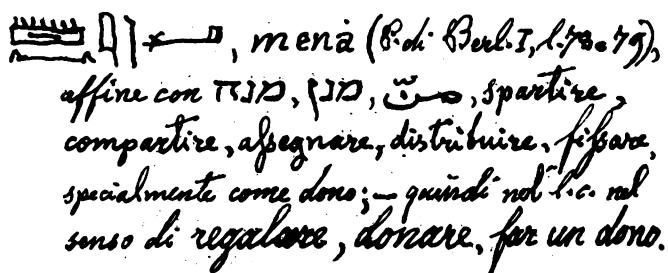 menȧ (P. di Berl. I, l. 78 e 79),
affine con מנה, מנן, منّ, spartire,
compartire, assegnare, distribuire, fissare,
specialmente come dono; — quindi nel l. c. nel
senso di regalare, donare, far un dono.